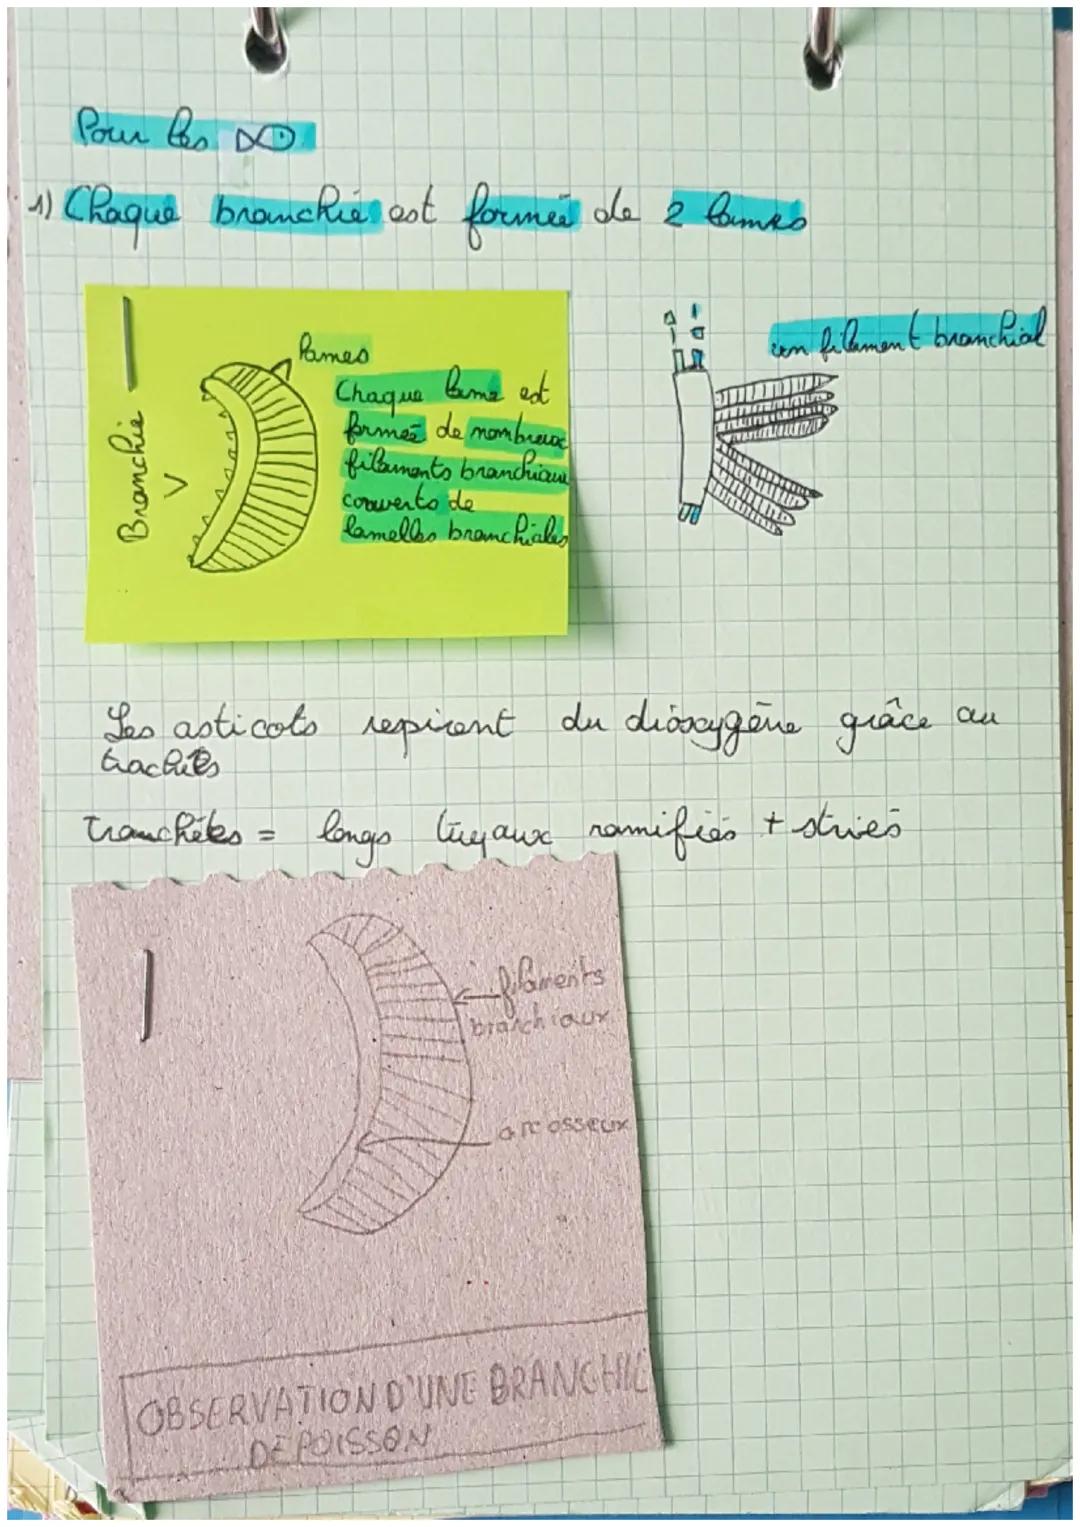 Pour les
1) Chaque branchie est formée de 2 lames
Lames
Chaque lame est
formée de nombreux
filaments branchiaux
couverts de
lamelles branchiales
Branchie
un filament branchial
Les asticots respirent du dioxygène grâce au
trachés
tranchêes = longs tuyaux ramifiés + striés
filaments
branchiaux
arc osseux
OBSERVATION D'UNE BRANCHIE
DE POISSON